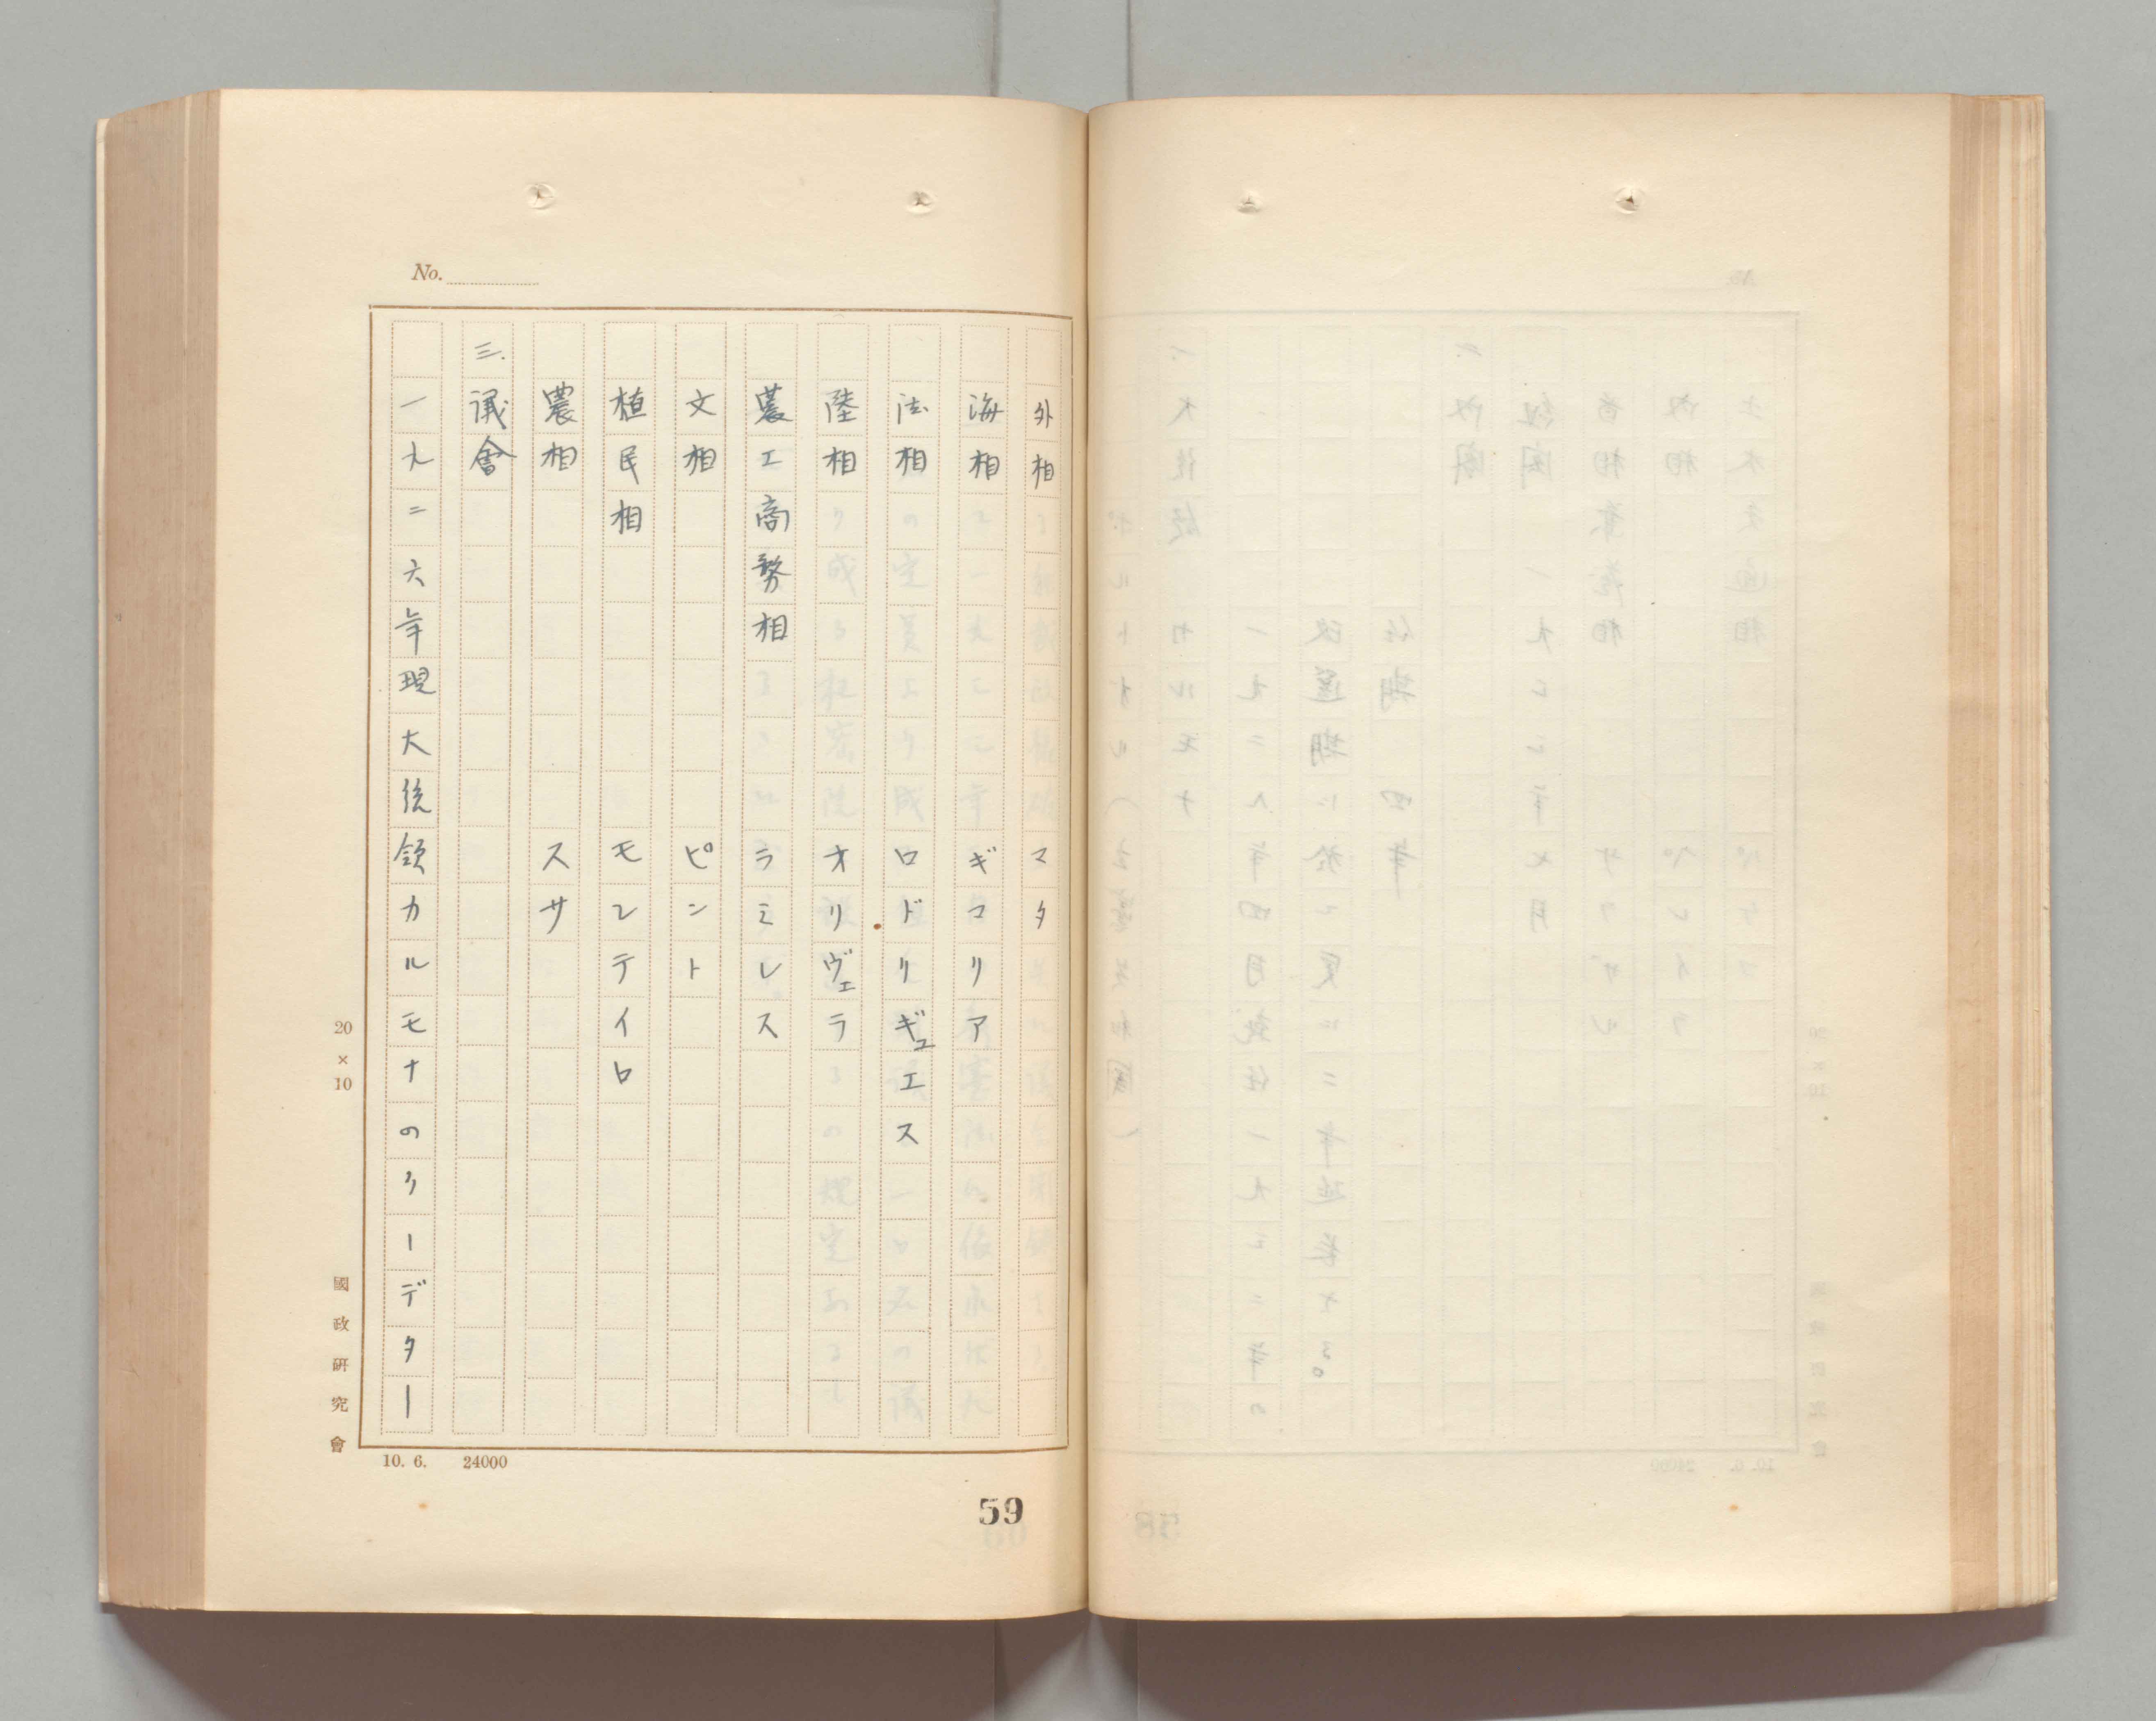 No.
外相 マタ
海相 ギマリア
法相 ロドリギュエス
陸相 オリヴェラ
農工商務相 ラミレス
文相 ピント
植民相 モンテイロ
農相 スサ
三.議會
一九二六年現大統領カルモナのクーデター
20×10
國政研究會
10. 6. 24000
59